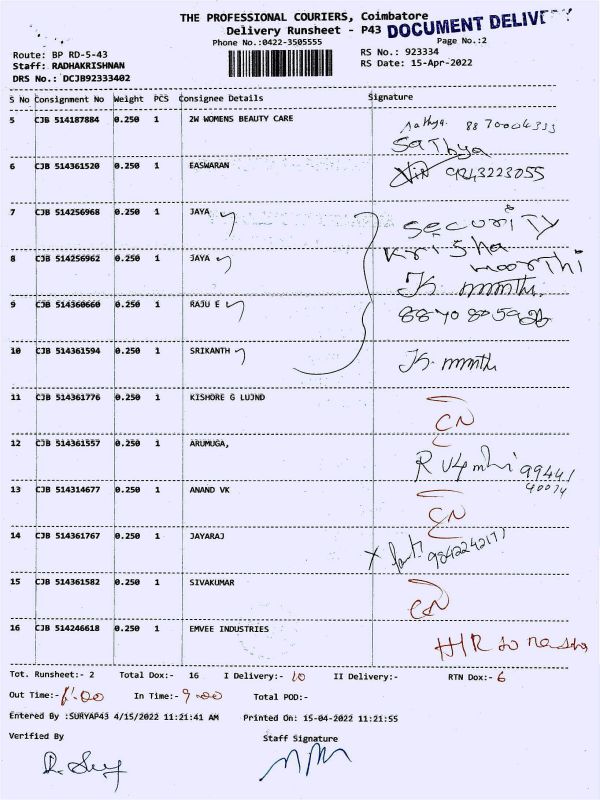 THE PROFESSIONAL COURIERS, Coimbatore
Delivery Runsheet - P43 DOCUMENT DELIV
Phone No.:0422-3505555 Page No.:2
Route: BP RD-5-43 RS No.: 923334
Staff: RADHAKRISHNAN RS Date: 15-Apr-2022
DRS No.: DCJB92333402
S No Consignment No Weight PCS Consignee Details Signature
5 CJB 514187884 0.250 1 2W WOMENS BEAUTY CARE Sathya. 8870004333
Sathya
6 CJB 514361520 0.250 1 EASWARAN 9243223055
7 CJB 514256968 0.250 1 JAYA SECURITY
Krisha
8 CJB 514256962 0.250 1 JAYA moorthi
9 CJB 514360660 0.250 1 RAJU E
10 CJB 514361594 0.250 1 SRIKANTH
11 CJB 514361776 0.250 1 KISHORE G LUJND CN
12 CJB 514361557 0.250 1 ARUMUGA, 99441
40074
13 CJB 514314677 0.250 1 ANAND VK CN
14 CJB 514361767 0.250 1 JAYARAJ
15 CJB 514361582 0.250 1 SIVAKUMAR CN
16 CJB 514246618 0.250 1 EMVEE INDUSTRIES
Tot. Runsheet:- 2 Total Dox:- 16 I Delivery:- 10 II Delivery:- RTN Dox:- 6
Out Time:- In Time:- 9.00 Total POD:-
Entered By :SURYAP43 4/15/2022 11:21:41 AM Printed On: 15-04-2022 11:21:55
Verified By Staff Signature